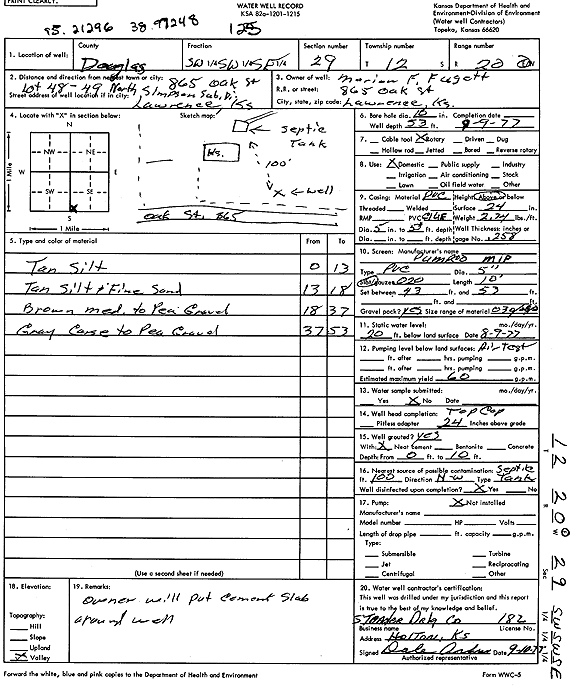 PRINT CLEARLY.
WATER WELL RECORD
KSA 82a-1201-1215
Kansas Department of Health and
Environment-Division of Environment
(Water well Contractors)
Topeka, Kansas 66620
95.21296 38.97248
125
1. Location of well:
County
Douglas
Fraction
SW 1/4 SW 1/4 SE 1/4
Section number
29
Township number
T 12 S
Range number
R 20 E
2. Distance and direction from nearest town or city: 865 Oak St
Lot 48-49 North, Simpson Sub, Di.
Street address of well location if in city:
Lawrence, Ks
3. Owner of well: Marion F. Fugett
R.R. or street: 865 Oak St
City, state, zip code: Lawrence, Ks.
4. Locate with "X" in section below:
N
NW NE
W E
SW SE
X
S
1 Mile
1 Mile
Sketch map:
Septic
Tank
Hs.
100'
X well
Oak St. 865
5. Type and color of material
From To
Tan Silt 0 13
Tan Silt & Fine Sand 13 18
Brown med. to Pea Gravel 18 37
Gray Corse to Pea Gravel 37 53
(Use a second sheet if needed)
6. Bore hole dia. 10 in. Completion date
Well depth 53 ft. 8-9-77
7. Cable tool X Rotary Driven Dug
Hollow rod Jetted Bored Reverse rotary
8. Use: X Domestic Public supply Industry
Irrigation Air conditioning Stock
Lawn Oil field water Other
9. Casing: Material PVC Height: Above or below
Threaded Welded Surface 24 in.
RMP PVC Glue Weight 2.74 lbs./ft.
Dia. 5 in. to 53 ft. depth Wall Thickness: inches or
Dia. in. to ft. depth gage No. .258
10. Screen: Manufacturer's name
Type PVC Dia. 5"
Slot/gauze .020 Length 10'
Set between 43 ft. and 53 ft.
ft. and ft.
Gravel pack? yes Size range of material
11. Static water level: mo./day/yr.
20 ft. below land surface Date 8-9-77
12. Pumping level below land surfaces: Air Test
ft. after hrs. pumping g.p.m.
ft. after hrs. pumping g.p.m.
Estimated maximum yield 60 g.p.m.
13. Water sample submitted: mo./day/yr.
Yes X No Date
14. Well head completion: Top Cap
Pitless adapter 24 Inches above grade
15. Well grouted? yes
With: X Neat cement Bentonite Concrete
Depth: From 0 ft. to 10 ft.
16. Nearest source of possible contamination: Septic
ft. 100 Direction NW Type Tank
Well disinfected upon completion? X Yes No
17. Pump: X Not installed
Manufacturer's name
Model number HP Volts
Length of drop pipe ft. capacity g.p.m.
Type:
Submersible Turbine
Jet Reciprocating
Centrifugal Other
18. Elevation:
Topography:
Hill
Slope
Upland
X Valley
19. Remarks:
owner will put cement slab
around well
20. Water well contractor's certification:
This well was drilled under my jurisdiction and this report
is true to the best of my knowledge and belief.
Strader Drlg Co 182
Business name License No.
Address Holton, Ks
Signed Date
Authorized representative
Forward the white, blue and pink copies to the Department of Health and Environment
Form WWC-5
T 12 R 20 E W Sec 29 SW SW SE
1/4 1/4 1/4